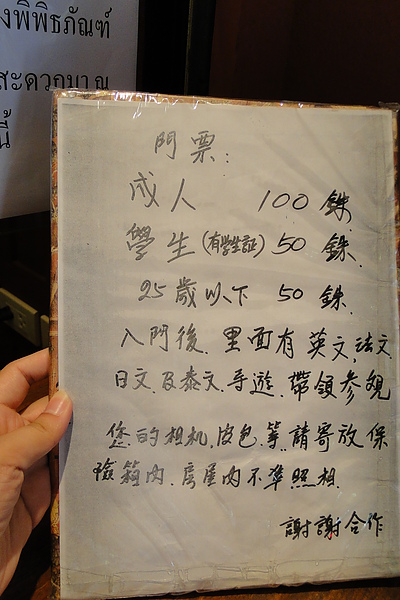 งพิพิธภัณฑ์
สะดวกมาณ
นี้
門票:
成人 100 銖.
學生(有學生証) 50 銖.
25歲以下 50 銖.
入門後.里面有英文,法文.
日文.及泰文.导遊.帶領参観
您的相机.皮包.等.請寄放保
險箱內.房屋內不準照相.
謝謝合作